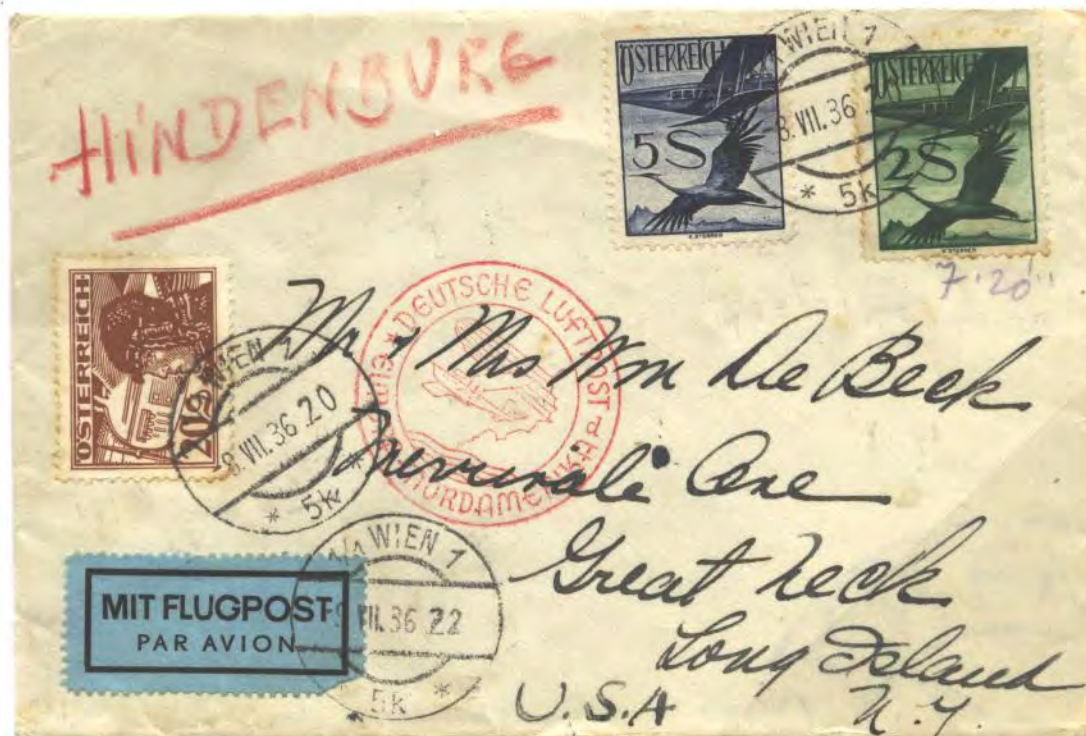 HINDENBURG
ÖSTERREICH
5S
ÖSTERREICH
2S
WIEN 1
8.VII.36
* 5k
7'20"
ÖSTERREICH
20g
WIEN 1
-8.VII.36 20
* 5k *
DEUTSCHE LUFTPOST
EUROPA NORDAMERIKA
Mr + Mrs Wm De Beck
Ave
Great Neck
Long Island
N.Y.
U.S.A
MIT FLUGPOST
PAR AVION
1/1 WIEN 1
VII.36 22
5k *